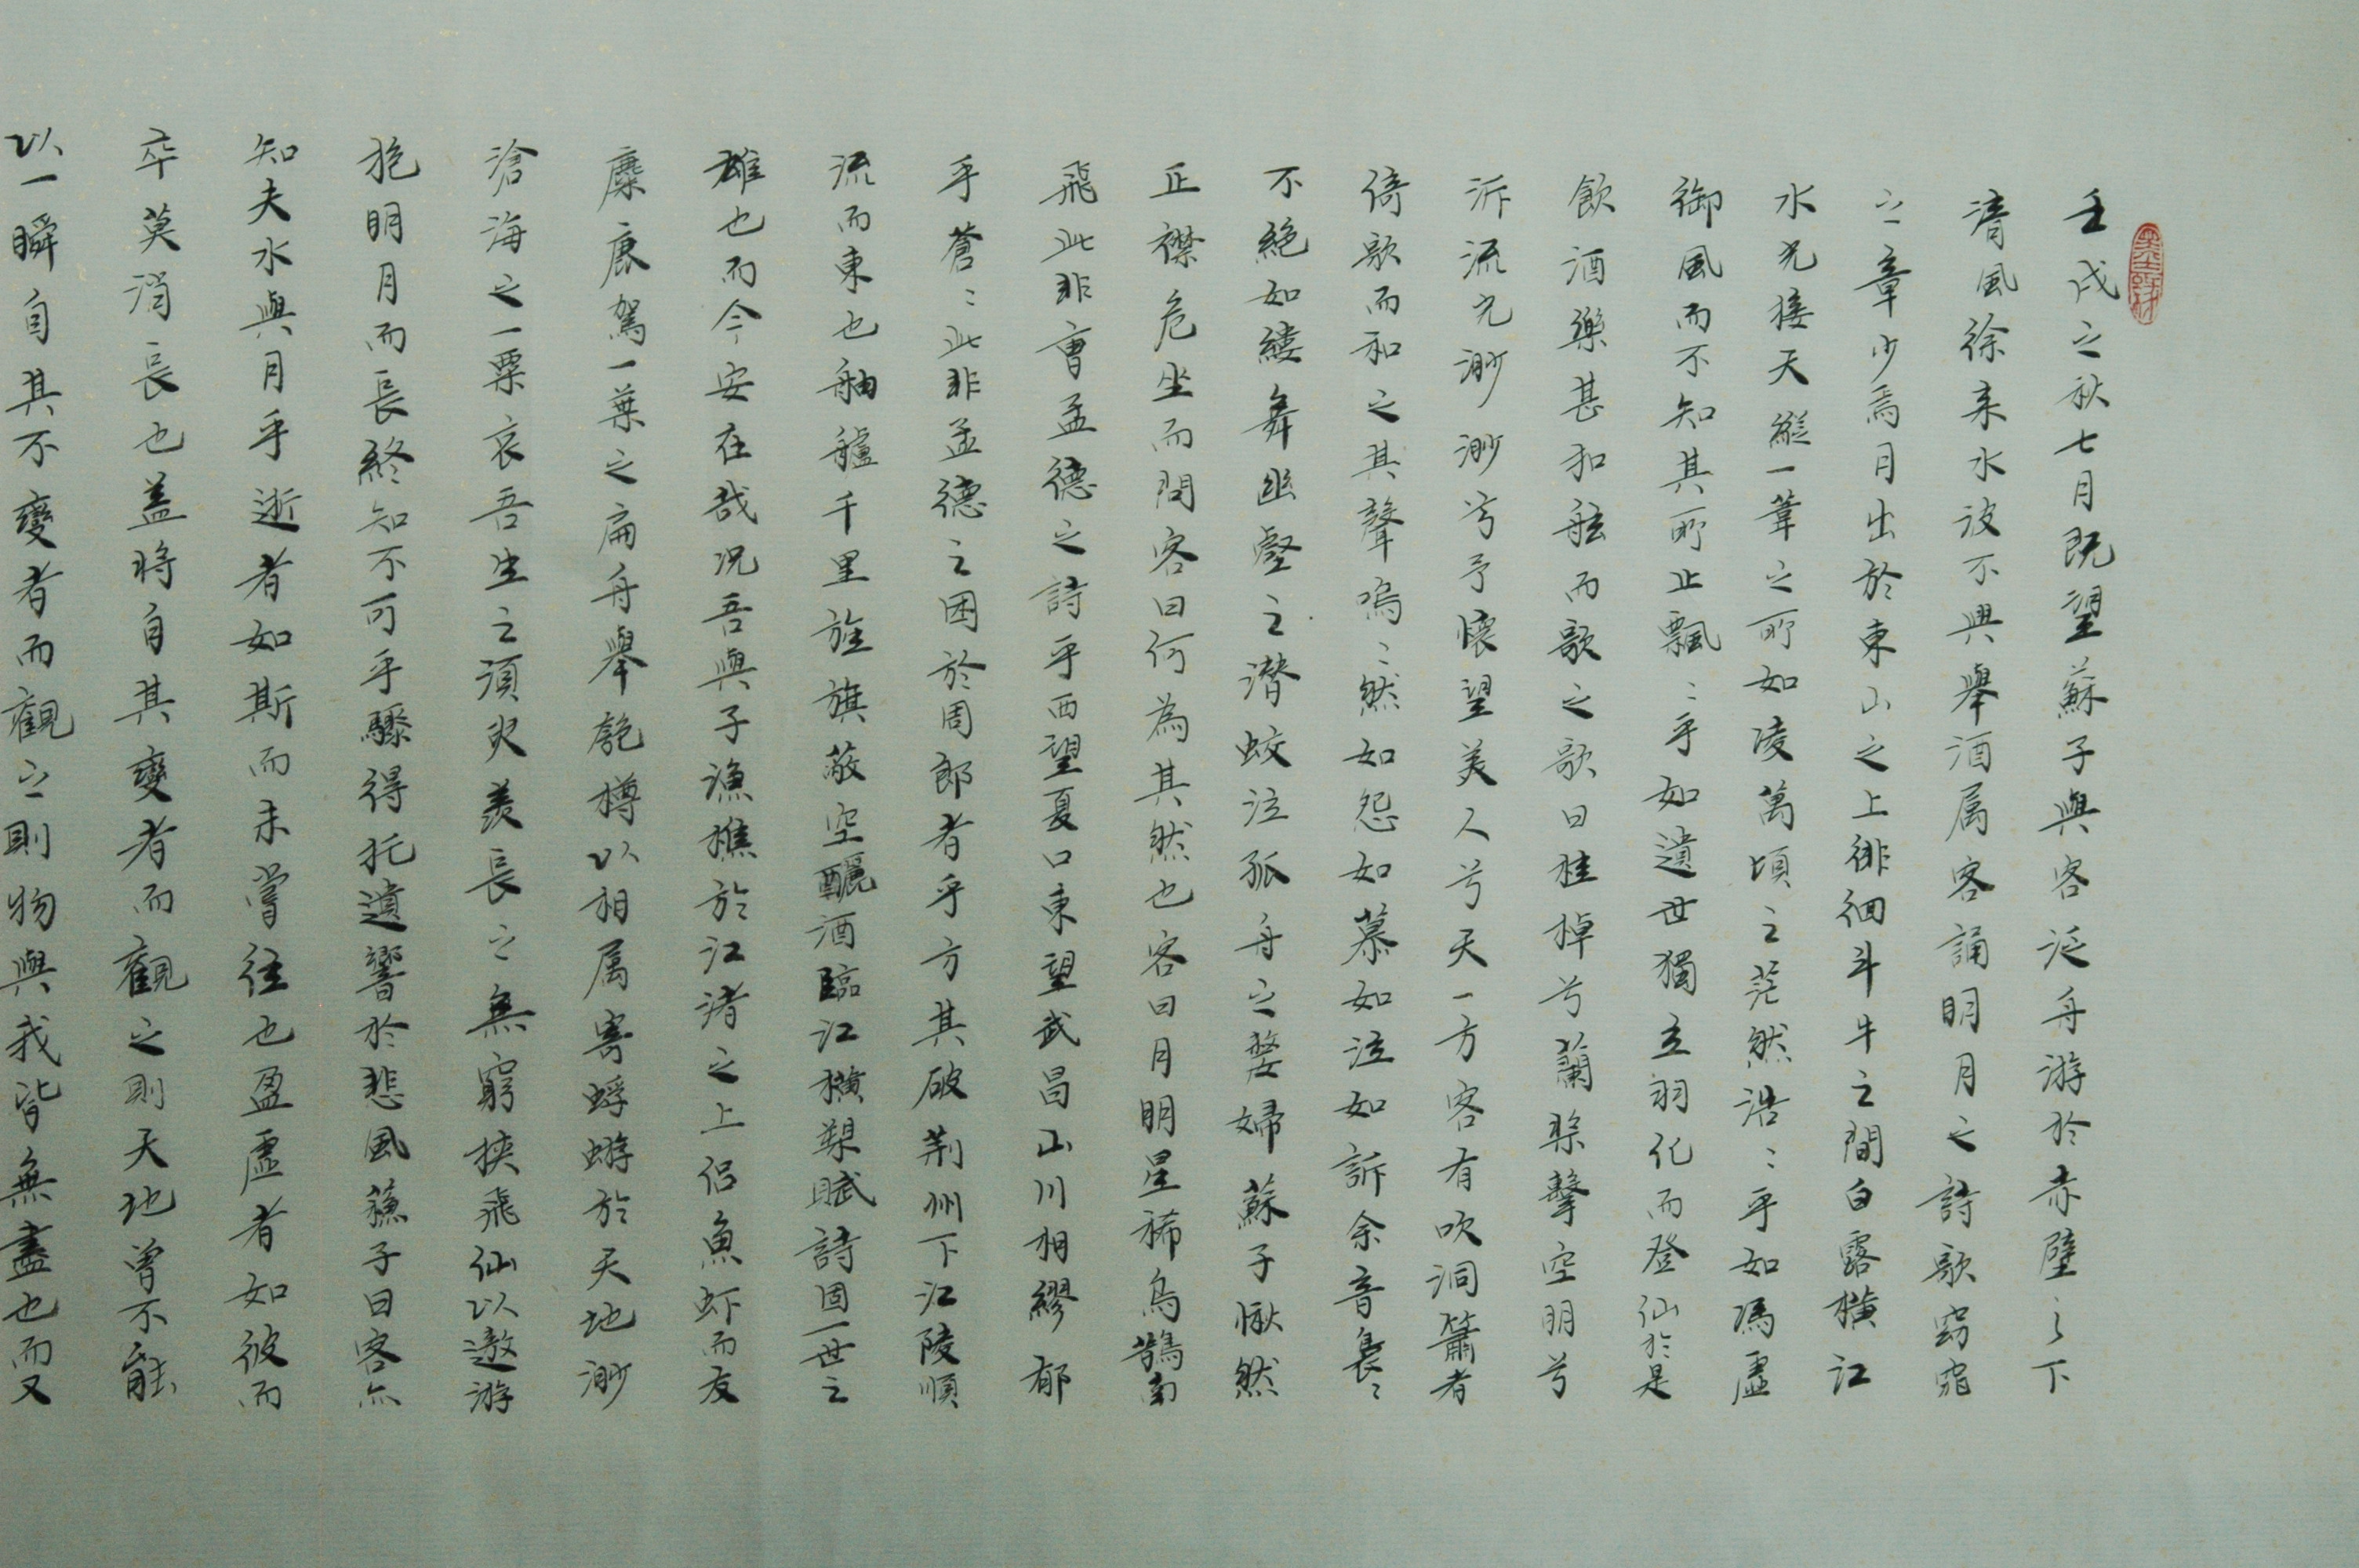 壬戌之秋七月既望蘇子與客泛舟游於赤壁之下
清風徐来水波不興舉酒属客誦明月之詩歌窈窕
之章少焉月出於東山之上徘徊斗牛之間白露橫江
水光接天縱一葦之所如凌萬頃之茫然浩ミ乎如馮虛
御風而不知其所止飄ミ乎如遺世獨立羽化而登仙於是
飲酒樂甚扣舷而歌之歌曰桂棹兮蘭槳擊空明兮
泝流光渺渺兮予懷望美人兮天一方客有吹洞簫者
倚歌而和之其聲嗚ミ然如怨如慕如泣如訴余音裊ミ
不絕如縷舞幽壑之潛蛟泣孤舟之嫠婦蘇子愀然
正襟危坐而問客曰何為其然也客曰月明星稀烏鵲南
飛此非曹孟德之詩乎西望夏口東望武昌山川相繆郁
乎蒼ミ此非孟德之困於周郎者乎方其破荆州下江陵順
流而東也舳艫千里旌旗蔽空釃酒臨江橫槊賦詩固一世之
雄也而今安在哉況吾與子漁樵於江渚之上侣魚虾而友
麋鹿駕一葉之扁舟舉匏樽以相属寄蜉蝣於天地渺
滄海之一粟哀吾生之須臾羨長之無窮挾飛仙以遨游
抱明月而長終知不可乎驟得托遺響於悲風蘇子曰客亦
知夫水與月乎逝者如斯而未嘗往也盈虛者如彼而
卒莫消長也蓋將自其變者而觀之則天地曾不能
以一瞬自其不變者而觀之則物與我皆無盡也而又